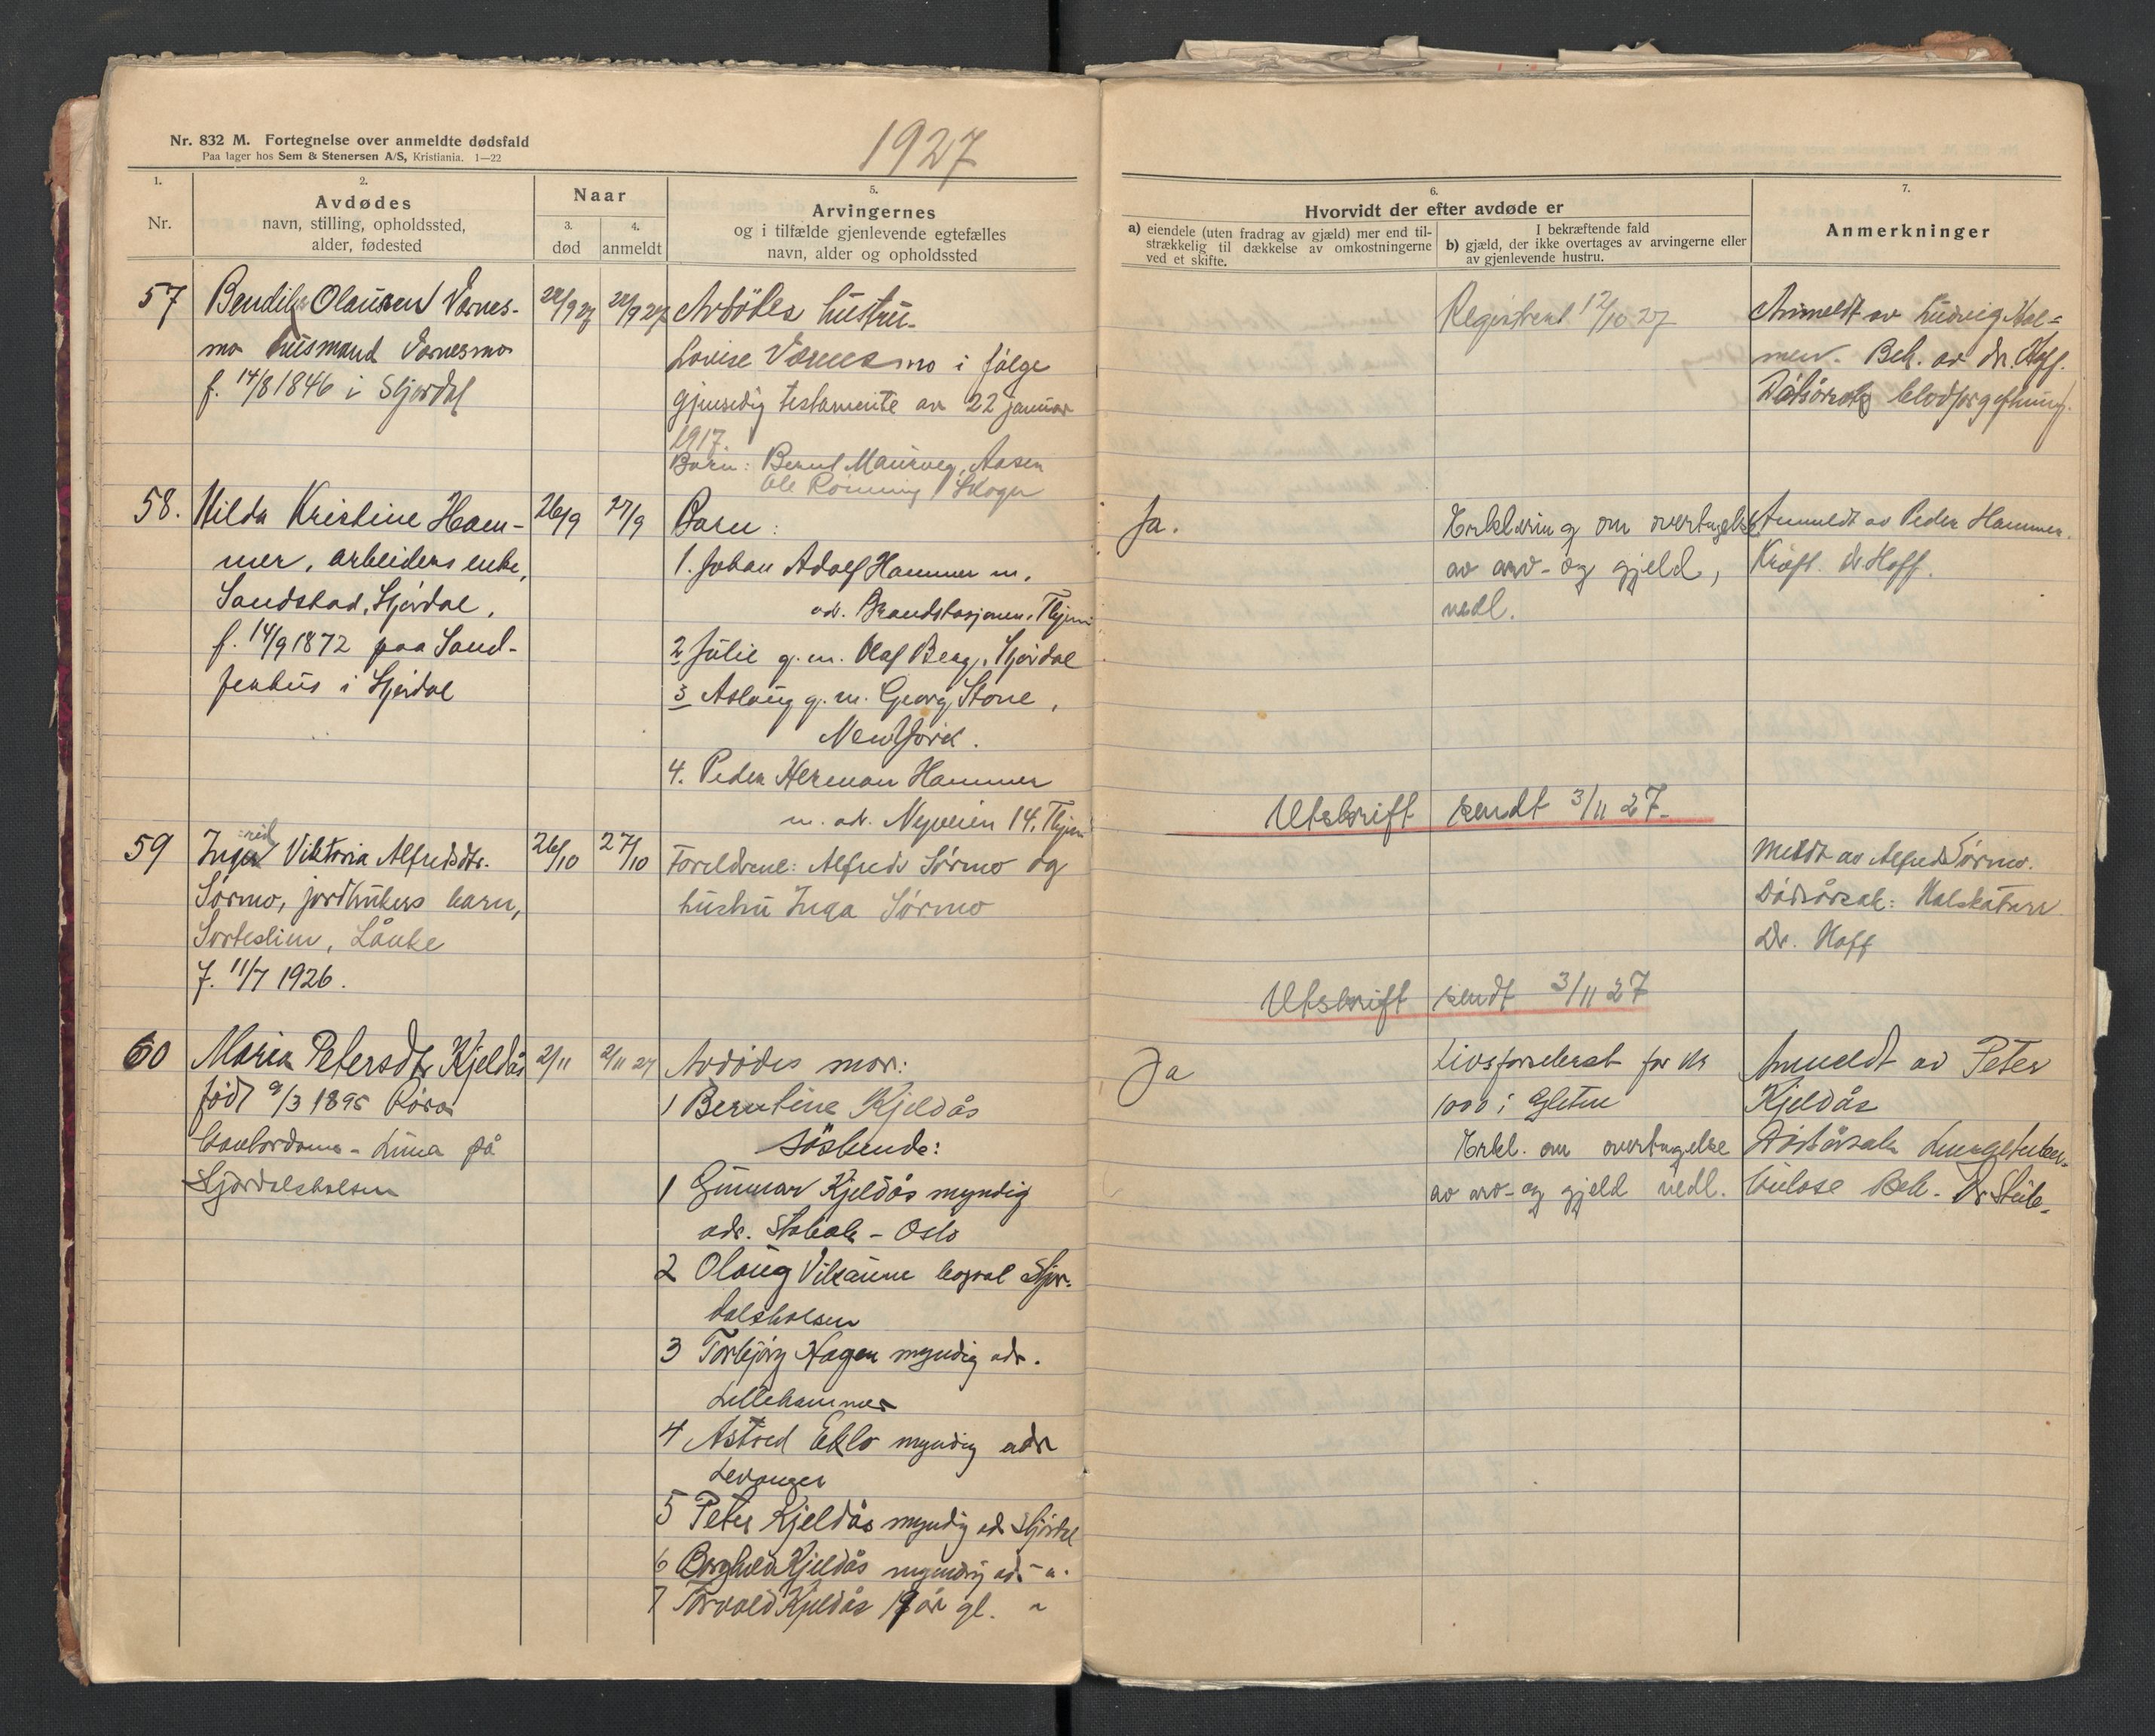 Nr. 832 M. Fortegnelse over anmeldte dødsfald
Paa lager hos Sem & Stenersen A/S, Kristiania. 1—22
1927
1.
Nr.
2.
Avdødes
navn, stilling, opholdssted,
alder, fødested
Naar
3.
død
4.
anmeldt
5.
Arvingernes
og i tilfælde gjenlevende egtefælles
navn, alder og opholdssted
6.
Hvorvidt der efter avdøde er
a) eiendele (uten fradrag av gjæld) mer end til-
strækkelig til dækkelse av omkostningerne
ved et skifte.
I bekræftende fald
b) gjæld, der ikke overtages av arvingerne eller
av gjenlevende hustru.
7.
Anmerkninger
57
Bendik Olausen Værnes-
mo husmand Værnesmo
f. 14/8 1846 i Stjørdal
22/9 27
22/9 27
Avdødes hustru
Lovise Værnesmo i følge
gjensidig testamente av 22 januar
1917.
Barn: Bernt Maurveg, Aasen
Ole Rønning Skogn
Registrert 12/10 27
Anmeldt av Ludvig Hal=
men. Beh. av dr. Hoff.
Dødsårsak blodforgiftning.
58.
Hilda Kristine Ham-
mer, arbeiders enke,
Sandstad, Stjørdal,
f. 14/9 1872 paa Sand-
ferhus i Stjørdal
26/9
27/9
Barn:
1. Johan Adolf Hammer m.
adr. Brandstasjonen, Thjem
2 Julie g. m. Olaf Berg, Stjørdal
3 Aslaug g. m. Georg Stone,
New York.
4. Peder Herman Hammer
m. adr. Nyveien 14, Thjem
Ja.
Erklæring om overtagelse
av arv- og gjeld,
vedl.
Anmeldt av Peder Hammer.
Kræft. dr Hoff.
Utskrift sendt 3/11 27-
59
Ingrid Viktoria Alfredsdtr.
Sørmo, jordbrukers barn,
Sorteslim, Lånke
f. 11/7 1926.
26/10
27/10
Foreldrene: Alfred Sørmo og
hustru Inga Sørmo
Meldt av Alfred Sørmo.
Dødsårsak: Halskatarr
Dr. Hoff
Utskrift sendt 3/11 27
60
Maria Petersdtr Kjeldås
født 9/3 1895 Røra
Kontordame - Lima på
Stjørdalshalsen
2/11
2/11 27
Avdødes mor:
1 Berntine Kjeldås
Søskende:
1 Gunnar Kjeldås myndig
adr. Stabæk - Oslo
2 Olaug Vikaune bopæl Stjør-
dalshalsen
3 Torbjørg Hagen myndig adr.
Lillehammer
4 Astrid Eklo myndig adr
Levanger
5 Peter Kjeldås myndig adr Stjørdal
6 Borghild Kjeldås myndig adr - " -
7 Torvald Kjeldås 19 år gl. "
Ja
Livsforsikret for kr
1000 i Gjensidige
Erkl. om overtagelse
av arv- og gjeld vedl.
Anmeldt av Peter
Kjeldås
Dødsårsak Lungetuber-
kulose Beh. Dr